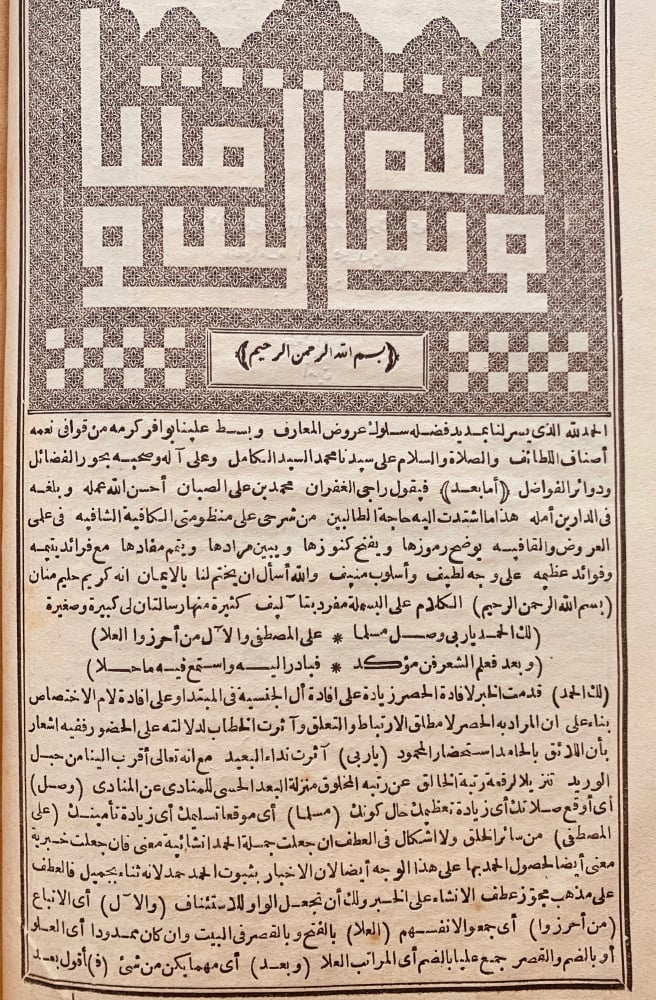 ﴿بسم الله الرحمن الرحيم﴾
الحمد لله الذى يسر لنا بمديد فضله سلوك عروض المعارف وبسط علينا بوافر كرمه من قوافى نعمه
أصناف اللطائف والصلاة والسلام على سيدنا محمد السيد الكامل وعلى آله وصحبه بحور الفضائل
ودوائر الفواضل ﴿أما بعد﴾ فيقول راجى الغفران محمد بن على الصبان أحسن الله عمله وبلغه
فى الدارين أمله هذا ما اشتدت اليه حاجة الطالبين من شرحى على منظومتى الكافية الشافيه فى علمى
العروض والقافيه يوضح رموزها ويفتح كنوزها ويبين مرادها ويتمم مفادها مع فرائد يتيمه
وفوائد عظيمه على وجه لطيف وأسلوب منيف والله أسأل ان يختم لنا بالايمان انه كريم حليم منان
(بسم الله الرحمن الرحيم) الكلام على البسملة مفرد بتآليف كثيرة منها رسالتان لى كبيرة وصغيرة
(لك الحمد يا ربى وصل مسلما * على المصطفى والآل من أحرزوا العلا)
(وبعد فعلم الشعر فن مؤكد * فبادر اليه واستمع فيه ما حلا)
(لك الحمد) قدمت الخبر لافادة الحصر زيادة على افادة أل الجنسية فى المبتدا وعلى افادة لام الاختصاص
بناء على ان المراد به الحصر لا مطلق الارتباط والتعلق وآثرت الخطاب لدلالته على الحضور ففيه اشعار
بأن اللائق بالحامد استحضار المحمود (يا ربى) آثرت نداء البعيد مع انه تعالى أقرب الينا من حبل
الوريد تنزيلا لرفعة رتبة الخالق عن رتبه المخلوق منزلة البعد الحسى للمنادى عن المنادى (وصل)
أى أوقع صلاتك أى زيادة تعظيمك حال كونك (مسلما) أى موقعا تسليمك أى زيادة تأمينك (على
المصطفى) من سائر الخلق ولا اشكال فى العطف ان جعلت جملة الحمد انشائية معنى فان جعلت خبرية
معنى أيضا لحصول الحمد بها على هذا الوجه أيضا لان الاخبار بثبوت الحمد حمد لانه ثناء بجميل فالعطف
على مذهب مجوز عطف الانشاء على الخبر ولك أن تجعل الواو للاستئناف (والآل) أى الاتباع
(من أحرزوا) أى جمعوا لانفسهم (العلا) بالفتح وبالقصر فى البيت وان كان ممدودا أى العلو
أو بالضم والقصر جمع عليا بالضم أى المراتب العلا (وبعد) أى مهما يكن من شئ (ف)أقول بعد